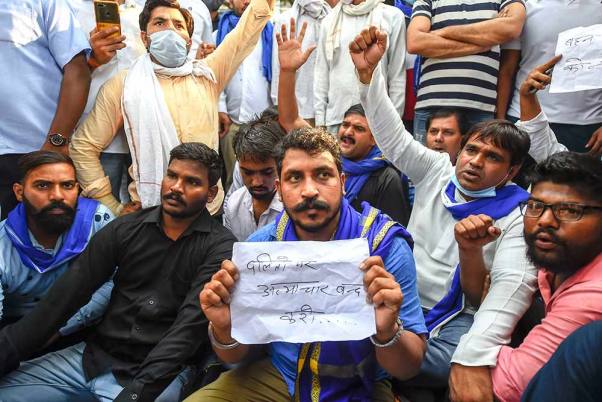 दलितों पर
अत्याचार बन्द
करो......
बहन
को